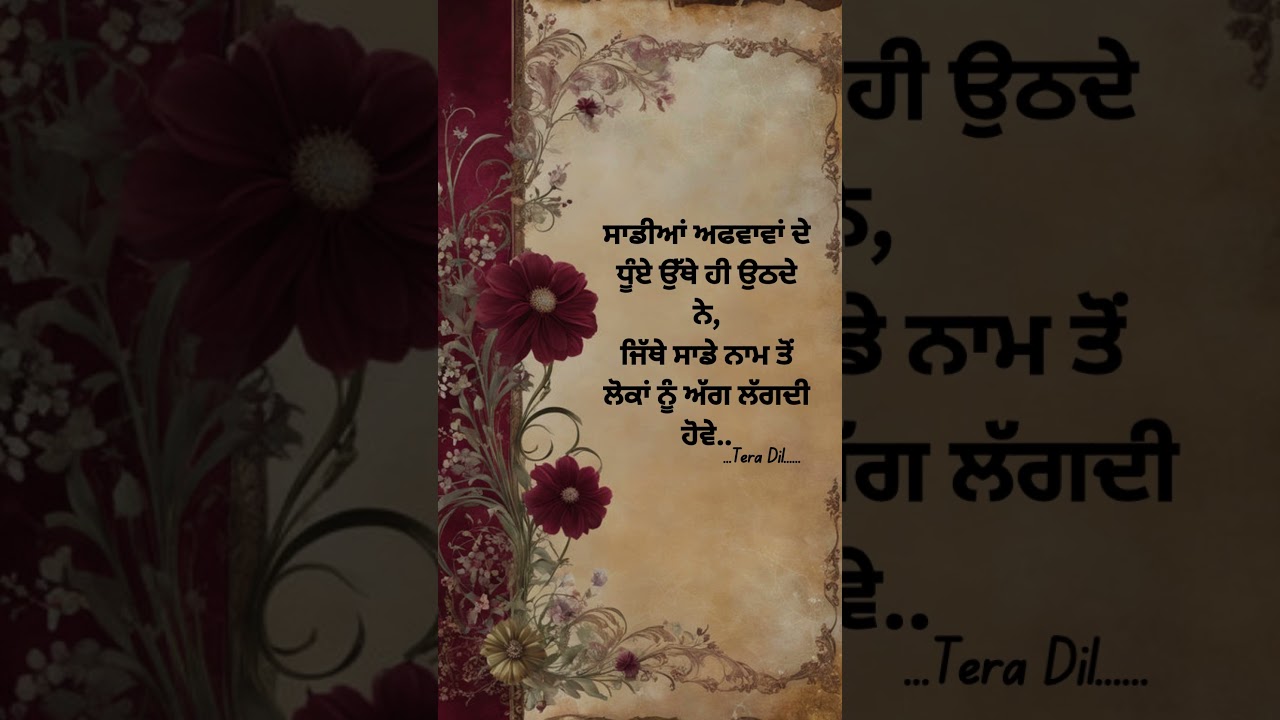 ਸਾਡੀਆਂ ਅਫਵਾਵਾਂ ਦੇ
ਧੂੰਏ ਉੱਥੇ ਹੀ ਉਠਦੇ
ਨੇ,
ਜਿੱਥੇ ਸਾਡੇ ਨਾਮ ਤੋਂ
ਲੋਕਾਂ ਨੂੰ ਅੱਗ ਲੱਗਦੀ
ਹੋਵੇ..
...Tera Dil......
ਹੀ ਉਠਦੇ
ਨੇ,
ਡੇ ਨਾਮ ਤੋਂ
ੱਗ ਲੱਗਦੀ
ਵੇ..
...Tera Dil......